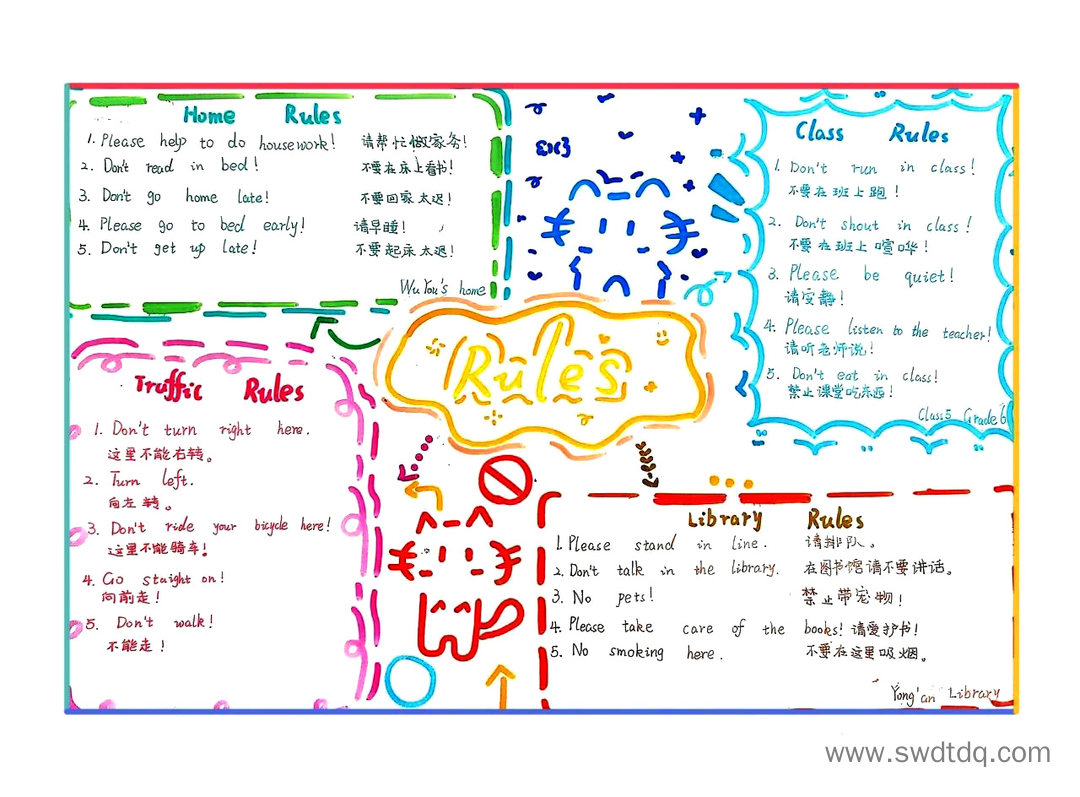 Home Rules
1. Please help to do housework! 请帮忙做家务!
2. Don't read in bed! 不要在床上看书!
3. Don't go home late! 不要回家太迟!
4. Please go to bed early! 请早睡!
5. Don't get up late! 不要起床太迟!
Wu You's home
Class Rules
1. Don't run in class!
不要在班上跑!
2. Don't shout in class!
不要在班上喧哗!
3. Please be quiet!
请安静!
4. Please listen to the teacher!
请听老师说!
5. Don't eat in class!
禁止课堂吃东西!
Class 5 Grade 6
Rules
Traffic Rules
1. Don't turn right here.
这里不能右转。
2. Turn left.
向左转。
3. Don't ride your bicycle here!
这里不能骑车!
4. Go staight on!
向前走!
5. Don't walk!
不能走!
Library Rules
1. Please stand in line. 请排队。
2. Don't talk in the library. 在图书馆请不要讲话。
3. No pets! 禁止带宠物!
4. Please take care of the books! 请爱护书!
5. No smoking here. 不要在这里吸烟。
Yong'an Library
www.swdtdq.com